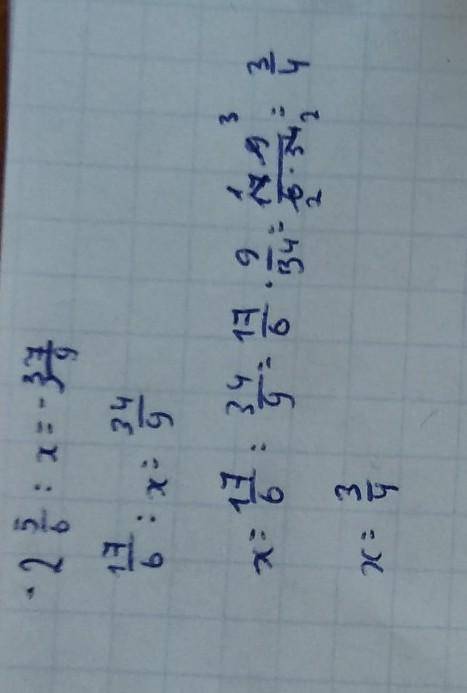 -2 5/6 : x = -3 7/9
17/6 : x = 34/9
x = 17/6 : 34/9 = 17/6 · 9/34 = 17 · 9 / 6 · 34 = 3/4
x = 3/4